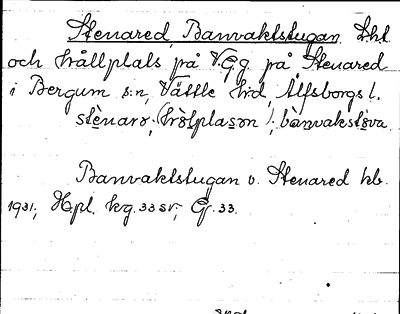 Stenared, Banvaktstugan Lht
och hållplats på VGJ på Stenared
i Bergum sn, Vättle hd, Älfsborgs l.
stènarə, (hòlplasən), bànvakstɵva.
Banvaktstugan v. Stenared kb.
1931; Hpl. kg. 33 SV; Gf. 33.